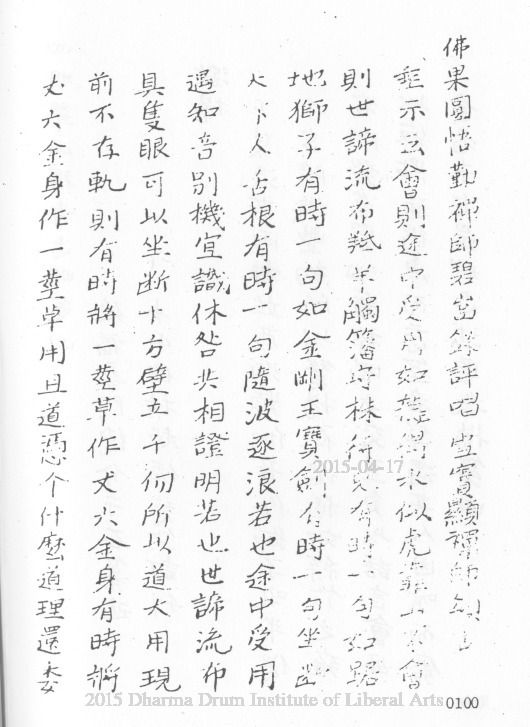 佛果圜悟勤禪師碧嵒錄評唱雪竇顯禪師頌古
垂示云會則途中受用如龍得水似虎靠山不會
則世諦流布羝羊觸籓守株待兔有時一句如踞
地獅子有時一句如金剛王寶劍有時一句坐斷
天下人舌根有時一句隨波逐浪若也途中受用
遇知音別機宜識休咎共相證明若也世諦流布
具隻眼可以坐断十方壁立千仞所以道大用現
前不存軌則有時將一莖草作丈六金身有時將
丈六金身作一莖草用且道憑个什麼道理還委
2015-04-17
2015 Dharma Drum Institute of Liberal Arts
0100